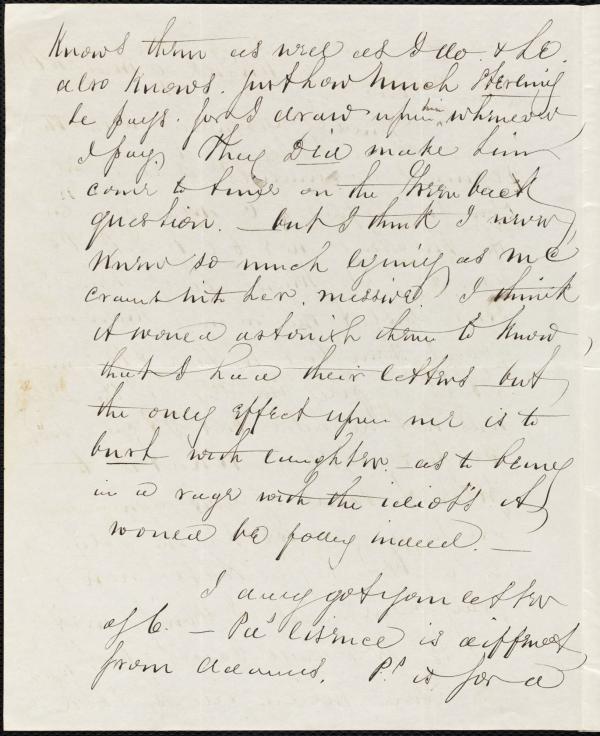 Knows them as well as I do. & he.
also knows. just how much Sterling
he pays. for I draw upon him whenever
I pay. They Did make him
come to time on the Greenback
question. — but I think I never
knew so much lying as Mc
crams into her missive. I think
it would astonish them to know
that I had their letters but
the only effect upon me is to
burst with laughter — as to being
in a rage with the idiots it
would be folly indeed. —
I duly got your letter
of 6. — lisence is different
from Adams. P.s is for a